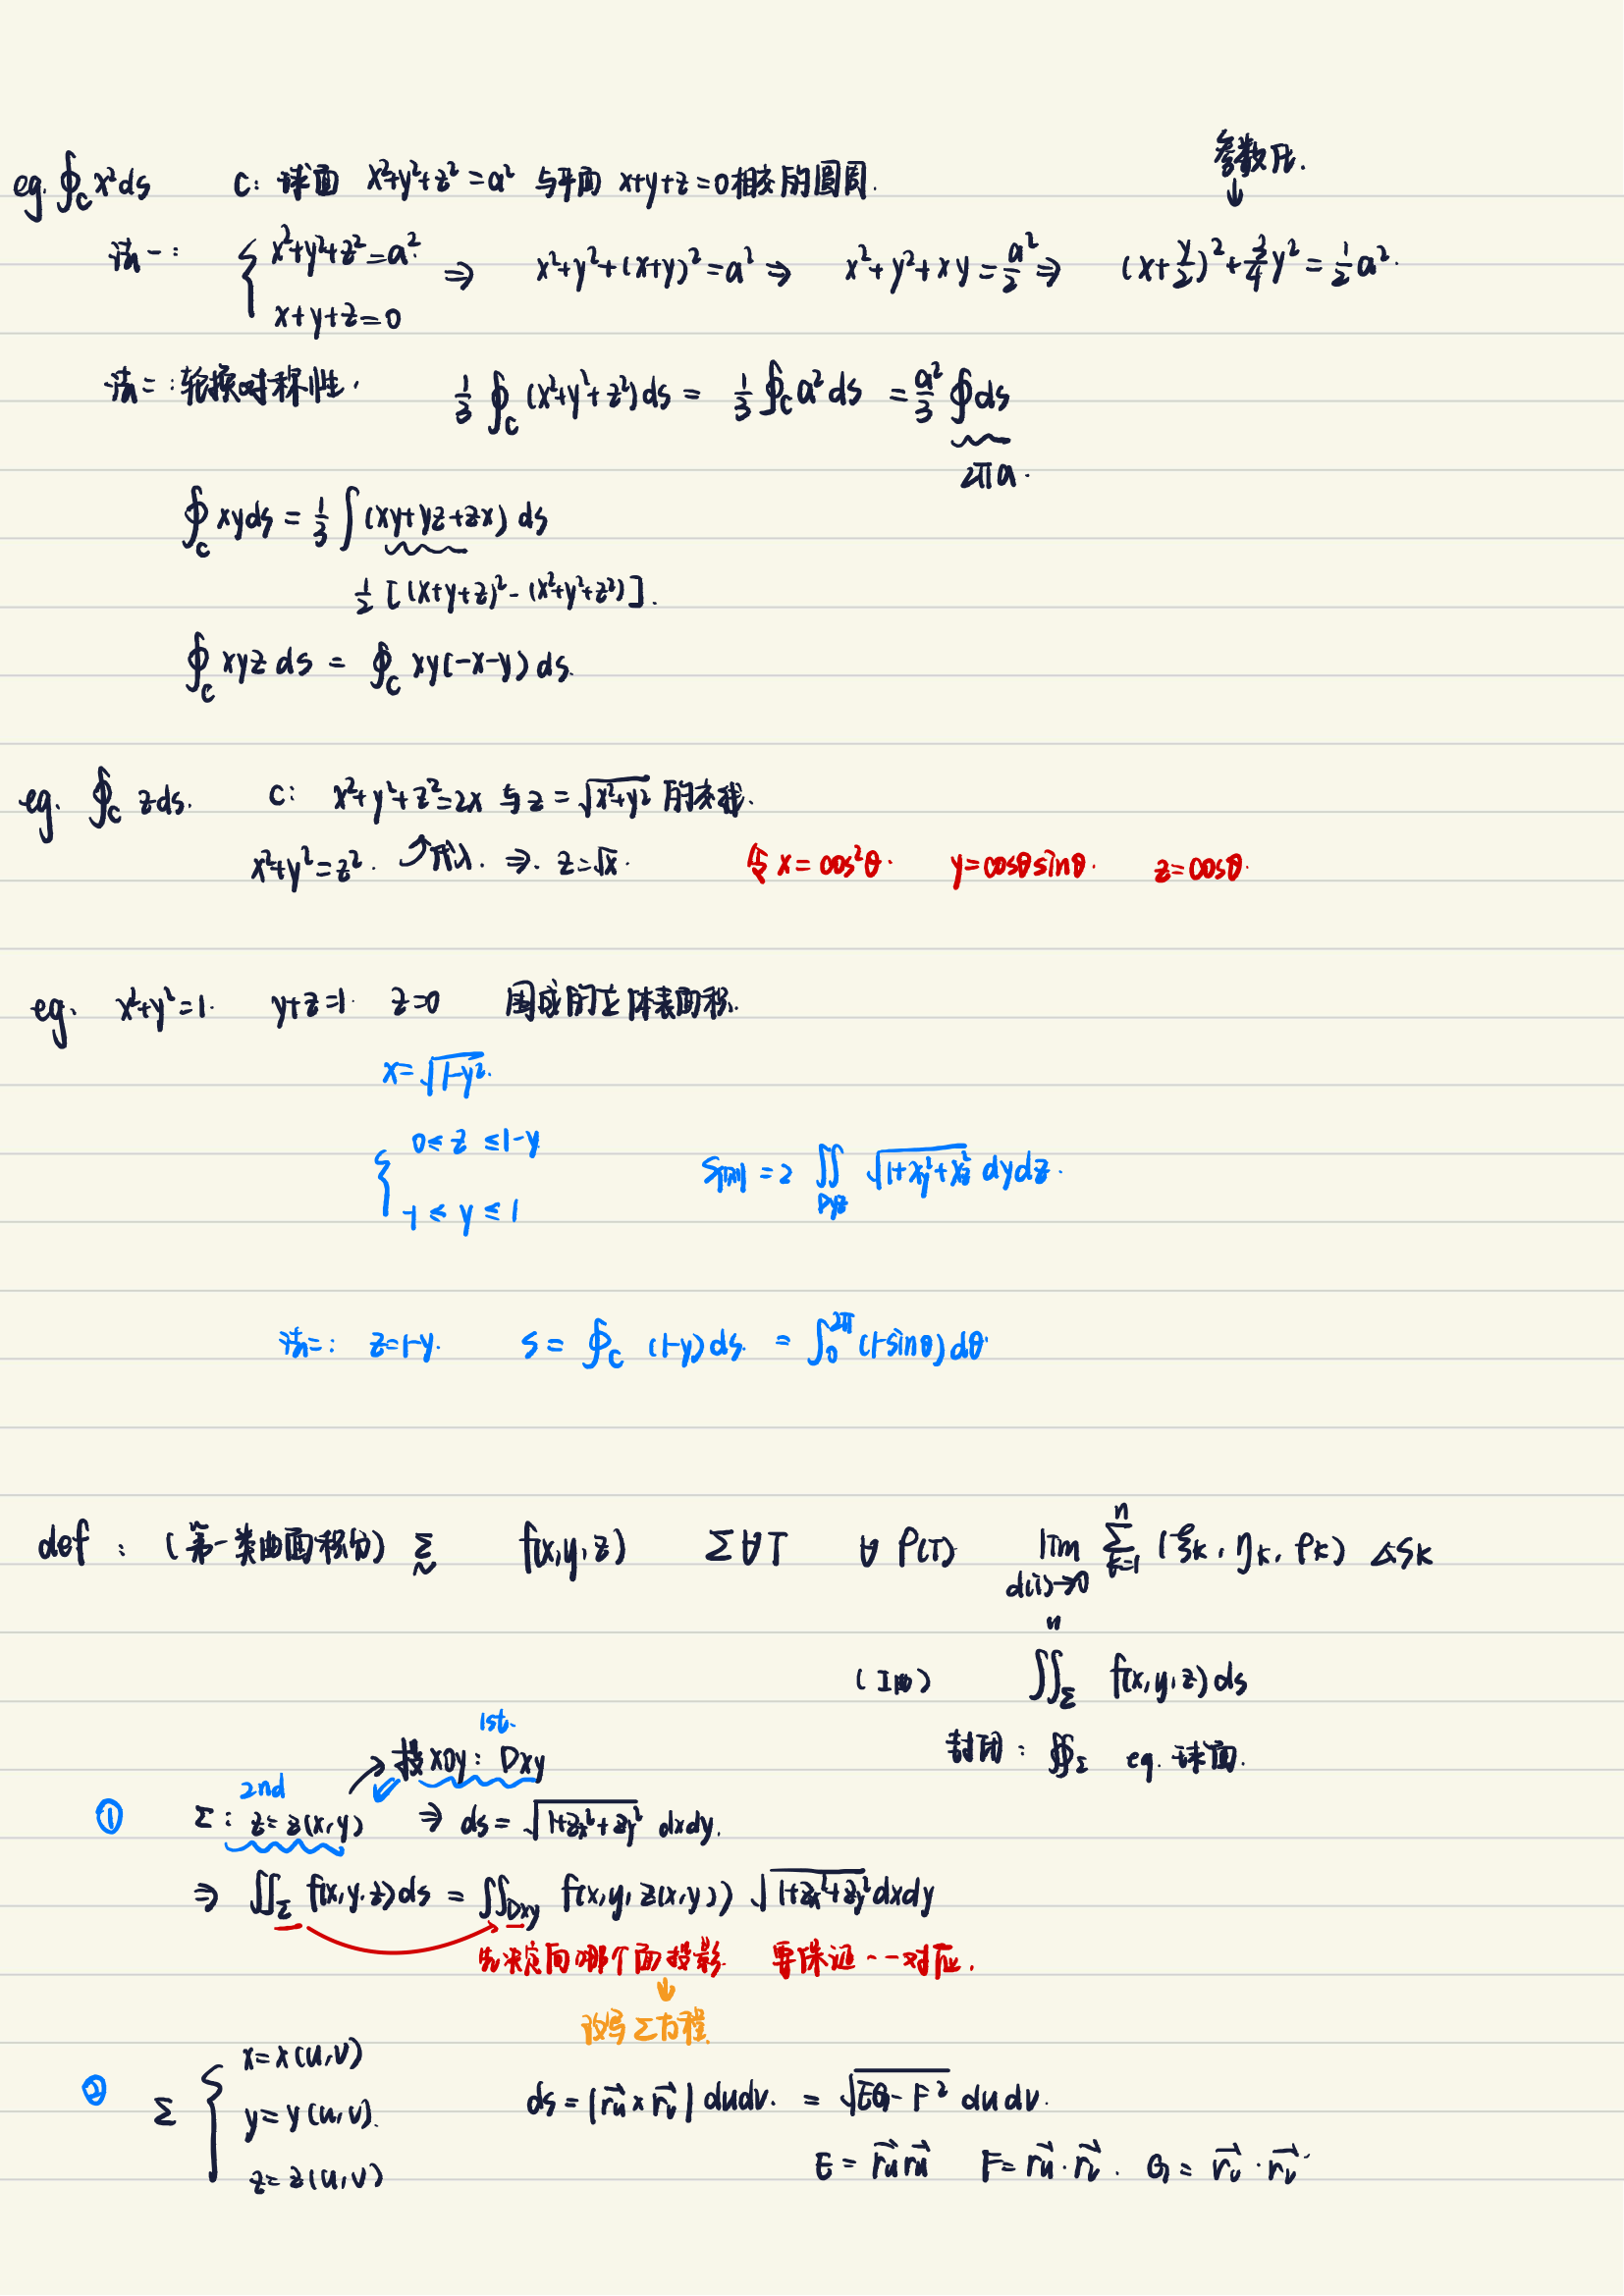 参数化.
↓
eg. ∮_C x²ds C: 球面 x²+y²+z²=a² 与平面 x+y+z=0相交的圆周.
法一: { x²+y²+z²=a² ⇒ x²+y²+(x+y)²=a² ⇒ x²+y²+xy=a²/2 ⇒ (x+y/2)²+3/4y²=1/2a².
x+y+z=0
法二:轮换对称性. 1/3∮_C(x²+y²+z²)ds = 1/3∮_C a²ds = a²/3∮ds
2πa.
∮_C xyds = 1/3∫(xy+yz+zx)ds
1/2[(x+y+z)²-(x²+y²+z²)].
∮_C xyz ds = ∮_C xy(-x-y)ds.
eg. ∮_C zds. C: x²+y²+z²=2x 与z=√(x²+y²) 的交线.
x²+y²=z². 代入. ⇒. z=√x. 令 x=cos²θ. y=cosθsinθ. z=cosθ.
eg. x²+y²=1. y+z=1. z=0 围成的立体表面积.
x=√(1-y²).
{ 0≤z≤1-y S侧=2∬_Dyz √(1+x_y²+x_z²) dydz.
-1≤y≤1
法二: z=1-y. S=∮_C(1-y)ds. =∫_0^2π(1-sinθ)dθ.
def: (第一类曲面积分) Σ f(x,y,z) Σ∀T ∀P(T) lim Σ_{k=1}^n (ξk,ηk,ρk) ΔSk
d(i)→0
n
(I曲) ∬_Σ f(x,y,z)ds
1st.
投xOy: Dxy 封闭: ∯_Σ eg. 球面.
2nd
① Σ: z=z(x,y) ⇒ ds=√(1+z_x²+z_y²) dxdy.
⇒ ∬_Σ f(x,y,z)ds = ∬_Dxy f(x,y,z(x,y))√(1+z_x²+z_y²)dxdy
先决定向哪个面投影. 要保证一一对应.
↓
改写Σ方程.
x=x(u,v)
② Σ { y=y(u,v). ds=|r⃗u×r⃗v|dudv. =√(EG-F²) dudv.
z=z(u,v) E=r⃗u r⃗u F=r⃗u·r⃗v. G=r⃗v·r⃗v